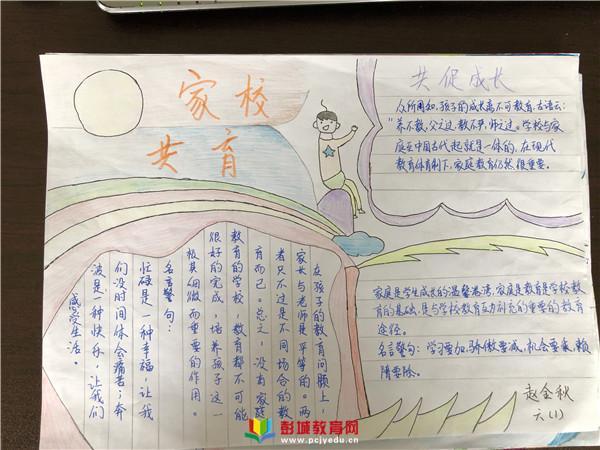 家校
共育
共促成长
众所周知,孩子的成长离不可教育,古语云:
"养不教,父之过,教不严,师之过。学校与家
庭在中国古代起就是一体的,在现代
教育体育制下,家庭教育仍然很重要。
在孩子的教育问题上,
家长与老师是平等的。两
者只不过是不同场合的教
育而已。总之,没有家庭
教育的学校教育都不可能
很好的完成,培养孩子这一
极其细微而重要的作用。
名言警句:
忙碌是一种幸福,让我
们没时间体会痛苦;奔
波是一种快乐,让我们
感受生活。
家庭是学生成长的温馨港湾,家庭是教育是学校教
育的基础,是与学校教育互为补充的重要的教育
途径。
名言警句:学习要加,骄傲要减,机会要乘,懒
隋要除。
赵金秋
六(1)
彭城教育网
www.pcjyedu.cn